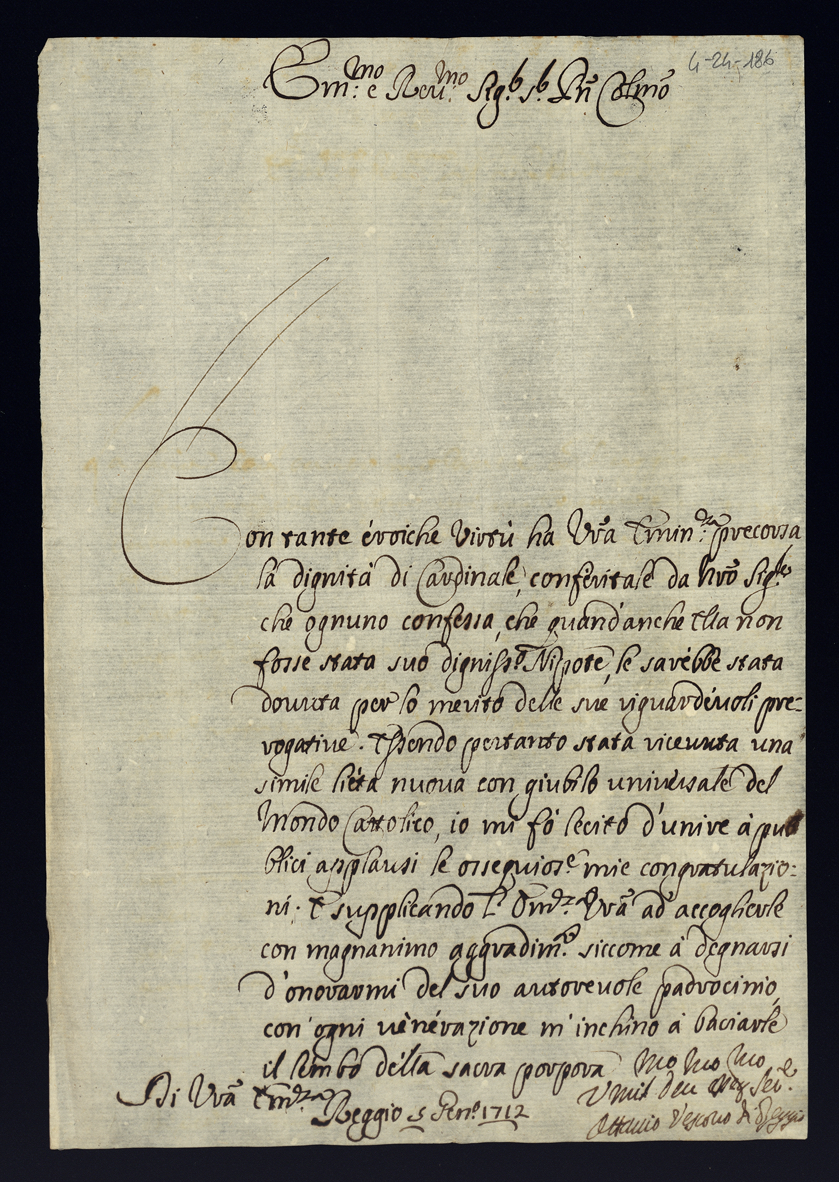 4-24-186
Em.mo e Reu.mo Sig.r S.r Prñ Colmo
Con tante éroiche Virtù ha Vrã Emin.za precorsa
la dignità di Cardinale, conferitale da Nrõ Sig.re
che ognuno confessa, che quand'anche Ella non
fosse stata suo digniss.o Nipote, le sarebbe stata
douuta per lo merito delle sue riguardeuoli pre=
rogatiue. Essendo pertanto stata riceuuta una
simile lieta nuoua con giubilo uniuersale del
Mondo Cattolico, io mi fò lecito d'unire à pub
blici applausi le ossequiose mie congratulazio:
ni. E supplicando l' Em.za Vrã ad accoglierle
con magnanimo aggradim.o siccome à degnarsi
d'onorarmi del suo autoreuole padrocinio,
con ogni uenerazione m'inchino à baciarle
il lembo della sacra porpora
Di Vrã Em.za
Reggio 5 Gen.o 1712
Vmil.mo Deu.mo Ser.e
Vescouo di Reggio